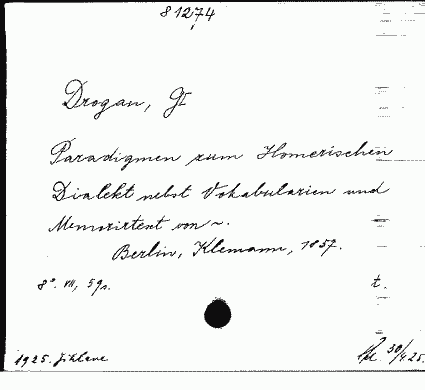 81274
Drogan, G.
Paradigmen zum Homerischen
Dialekt nebst Vokabularien und
Memorirtext von ~.
Berlin, Klemann, 1857.
8°. VII, 59 s. t.
1925. Jiklave 30/4 25.